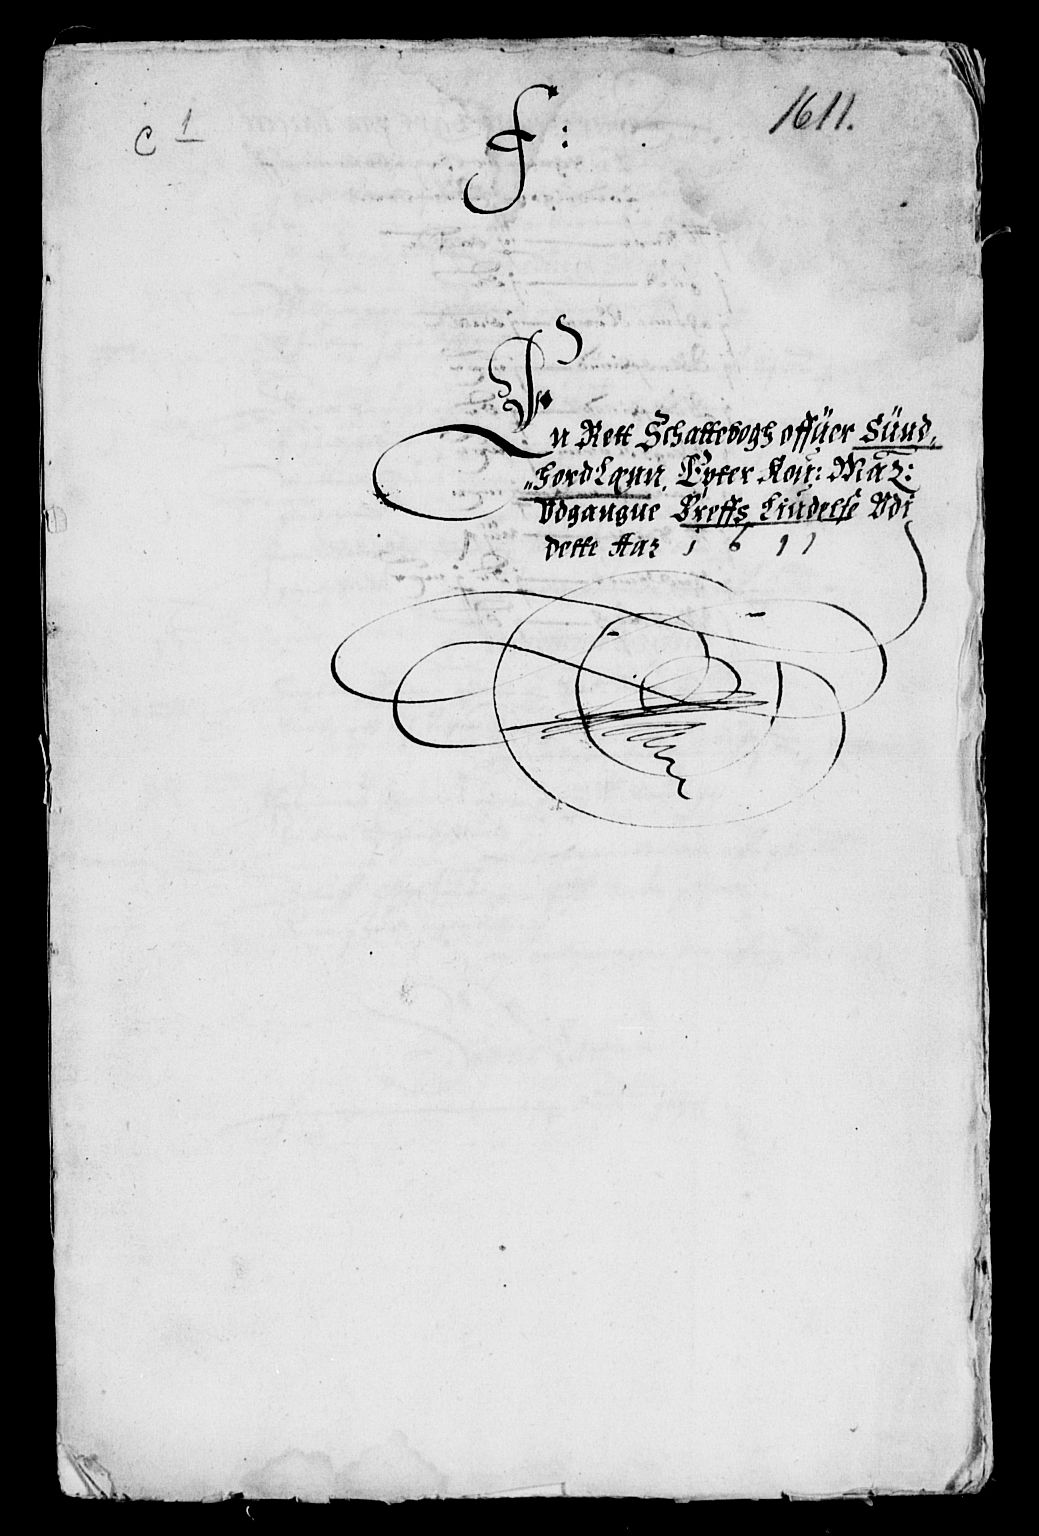 C 1
F:
1611.
En Rett Schattebogh offüer Sünd„
„hord Lenn, Epter Kon: Maz:
Vdgangne Breffs Liudelse Vdi
dette Aar 1611